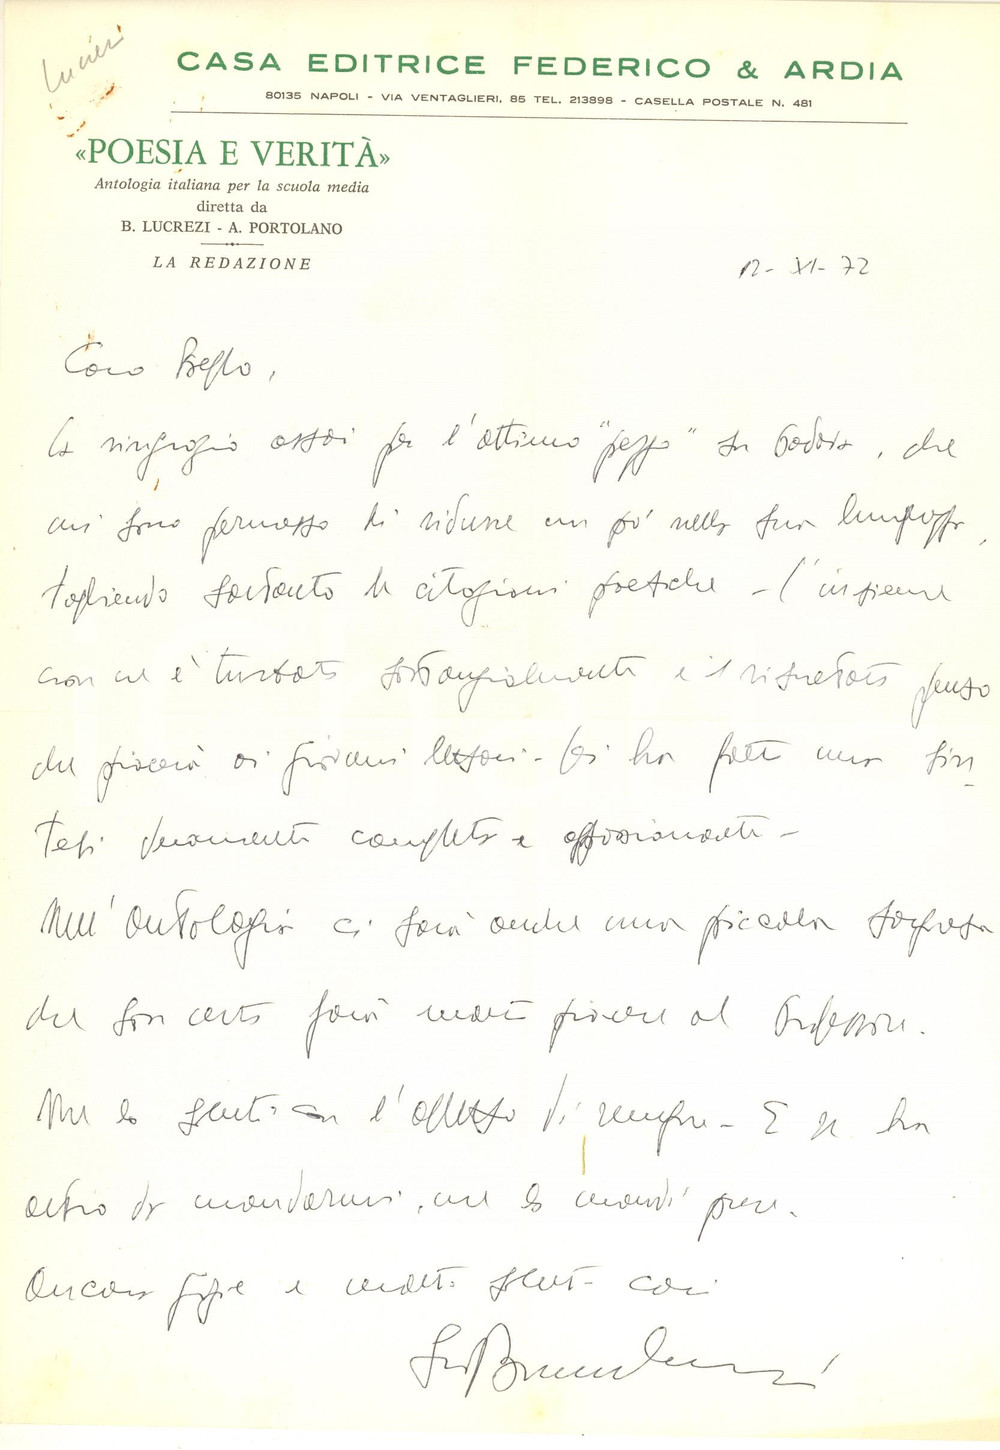 Lucrezi
CASA EDITRICE FEDERICO & ARDIA
80135 NAPOLI - VIA VENTAGLIERI, 85 TEL. 213898 - CASELLA POSTALE N. 481
«POESIA E VERITÀ»
Antologia italiana per la scuola media
diretta da
B. LUCREZI - A. PORTOLANO
LA REDAZIONE
12-XI-72
Caro
La ringrazio assai per l'ottimo "pezzo" su, che
mi sono permesso di ridurre un po' nella sua lunghezza,
togliendo soltanto le citazioni poetiche - L'insieme
non ne è turbato sostanzialmente e il risultato penso
che piacerà ai giovani lettori - Lei ha fatto una sin-
tesi veramente completa e appassionante -
Nell'Antologia ci sarà anche una piccola sorpresa
che son certo farà molto piacere al Professore.
Me lo saluti con l'affetto di sempre - E se ha
altro da mandarmi, me lo mandi pure.
Ancora grazie e molti saluti cari
Suo Bruno Lucrezi